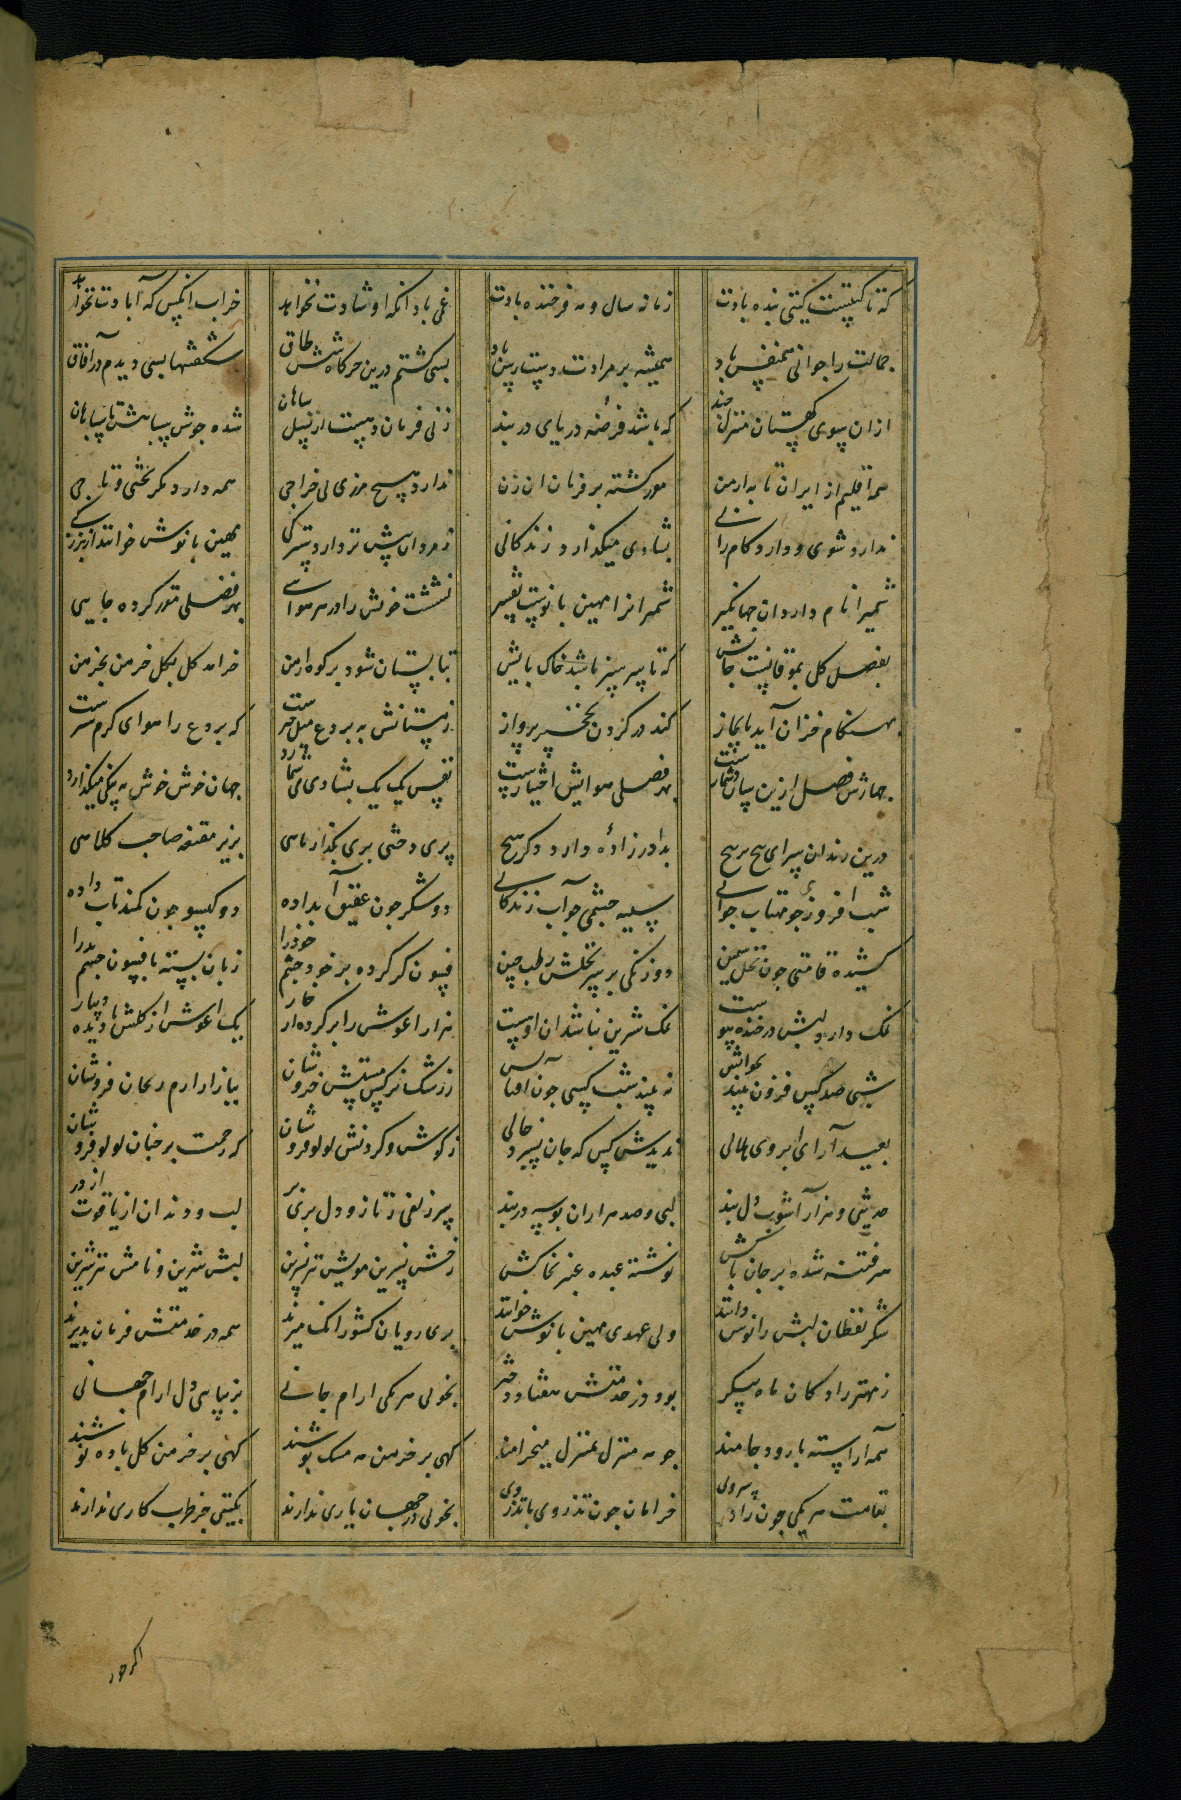 که تا گیتیست گیتی بنده بادت زمانه سال و مه فرخنده بادت غمی باد انکه او شادت نخواهد خراب انکس که آبادت نخواهد
جمالت را جوانی همنفس باد همیشه بر مرادت دسترس باد بسی گشتم درین خرگاه شش طاق شگفتیها بسی دیدم در آفاق
ازان سوی کهستان منزلی چند که باشد فرضه دریای دربند زنی فرمان دهست از نسل ساهان شده جوش سپاهش تا سپاهان
همه اقلیم از ایران تا به ارمن مقرر گشته بر فرمان ان زن ندارد هیچ مرزی بی خراجی همه دارد مگر تختی و تاجی
ندارد شوی و دارد کامرانی بشادی میگذارد زندگانی ز مردان بیشتر دارد سترگی مهین بانوش خوانند از بزرگی
شمیرا نام دارد ان جهانگیر شمیرا را مهین بانوست تفسیر نشست خویش را در هر هوایی بهر فصلی مقرر کرده جایی
بفصل گل بموقانست جایش که تا سرسبز باشد خاک پایش تابستان شود بر کوه ارمن خرامد گل بگل خرمن بخرمن
بهنگام خزان آید بابخاز کند در گردن نخجیر پرواز زمستانش به بردع میل خیزست که بردع را هوای گرم سیرست
چهارش فصل ازین سان در شمارست بهر فصلی هوایش اختیارست نفس یک یک بشادی می شمارد جهان خوش خوش به نیکی میگذارد
درین زندان سرای پیچ بر پیچ برادرزاده دارد دگر هیچ پری دختی پری بگذار ماهی بزیر مقنعه صاحب کلاهی
شب افروزی چو مهتاب جوانی سیه چشمی چو آب زندگانی دو شکر چون عقیق آب داده دو گیسو چون کمند تاب داده
کشیده قامتی چون نخل سیمین دو زنگی بر سر نخلش رطب چین فسون گر کرده بر خود چشم خود را زبان بسته بافسون چشم بد را
نمک دارد لبش در خنده پیوست نمک شیرین نباشد ان اوست هزار اغوش را بر کرده از خار یک اغوش از گلش نا دیده دیار
شبی صد کس فزون بیند بخوابش نه بیند شب کسی چون آفتابش ز رشک نرگس مستش خروشان ببازار ارم ریحان فروشان
بعید آرای ابروی هلالی ندیدش کس که جان نسپرد حالی ز گوش و گردنش لولو فروشان که رحمت بر چنان لولو فروشان
حدیثی و هزار آشوب دل بند لبی و صد هزاران بوسه در بند سر زلفی ز ناز و دل بری پر لب و دندان از یاقوت از در
هر فتنه شده بر جان پاکش نوشته عبده عنبر بخاکش رخش نسرین مویش نیز نسرین لبش شیرین و نامش نیز شیرین
شکر لفظان لبش را نوش دانند ولی عهدی مهین بانوش خوانند پری رویان کشور انک میرند همه در خدمتش فرمان پذیرند
ز مهتر زادگان ماه پیکر بود در خدمتش هفتاد دختر بخوبی هر یکی ارام جانی بزیبایی دل ارام جهانی
همه آراسته با رود و جامند چو مه منزل بمنزل میخرامند کهی بر خرمن مه مشک پوشند کهی بر خرمن گل باده نوشند
بقامت هر یکی چون زاد سروی خرامان چون تذروی با تذروی بخوبی در جهان یاری ندارند بگیتی جز طرب کاری ندارند
اگر